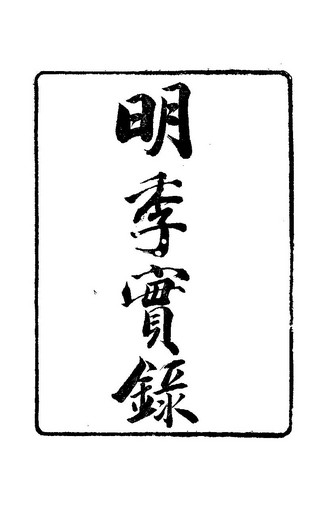 明季實錄